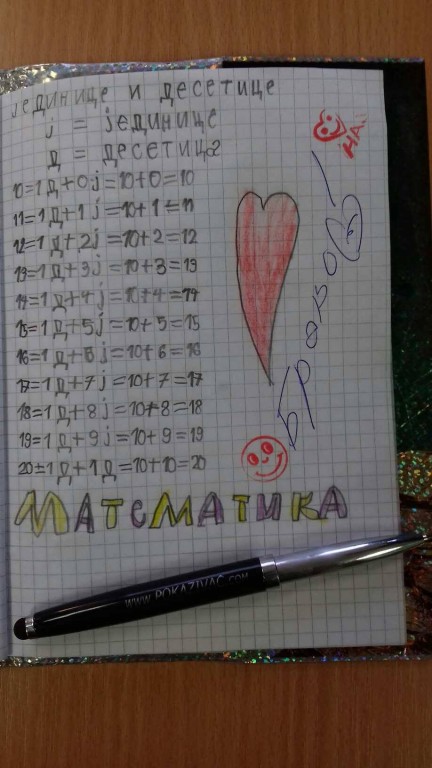 јединице и десетице
ј = јединице
д = десетице
10=1д+0ј=10+0=10
11=1д+1ј=10+1=11
12=1д+2ј=10+2=12
13=1д+3ј=10+3=13
14=1д+4ј=10+4=14
15=1д+5ј=10+5=15
16=1д+6ј=10+6=16
17=1д+7ј=10+7=17
18=1д+8ј=10+8=18
19=1д+9ј=10+9=19
20=1д+1д=10+10=20
МАТЕМАТИКА
Браво
НА.
www.POKAZIVAC.com